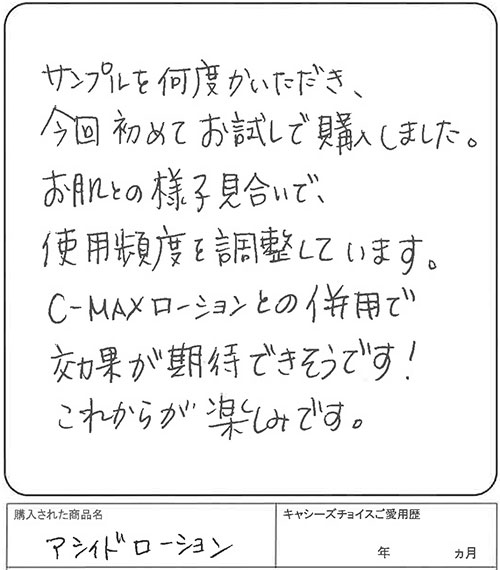 サンプルを何度かいただき、
今回初めてお試しで購入しました。
お肌との様子見合いで、
使用頻度を調整しています。
C-MAXローションとの併用で
効果が期待できそうです!
これからが楽しみです。
購入された商品名
アシィドローション
キャシーズチョイスご愛用歴
年 ヵ月